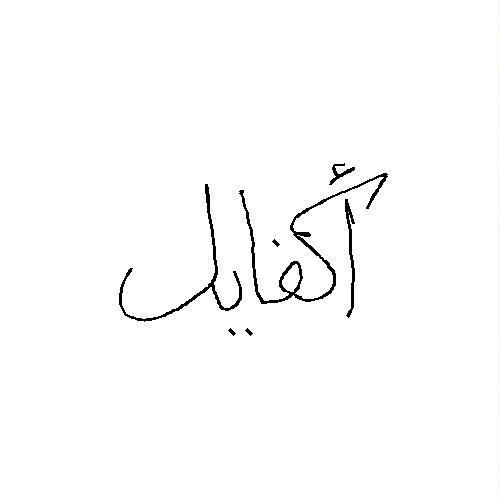 أكفايل